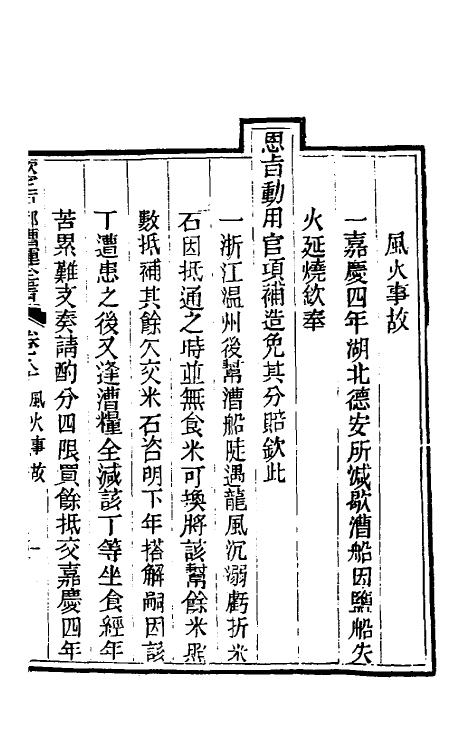 風火事故
一嘉慶四年湖北德安所減歇漕船因鹽船失
火延燒欽奉
恩旨動用官項補造免其分賠欽此
一浙江温州後幫漕船陡遇龍風沉溺虧折米
石因抵通之時並無食米可換將該幫餘米照
數抵補其餘欠交米石咨明下年搭解嗣因該
丁遭患之後又逢漕糧全減該丁等坐食經年
苦累難支奏請酌分四限買餘抵交嘉慶四年
漕運全書
風火事故